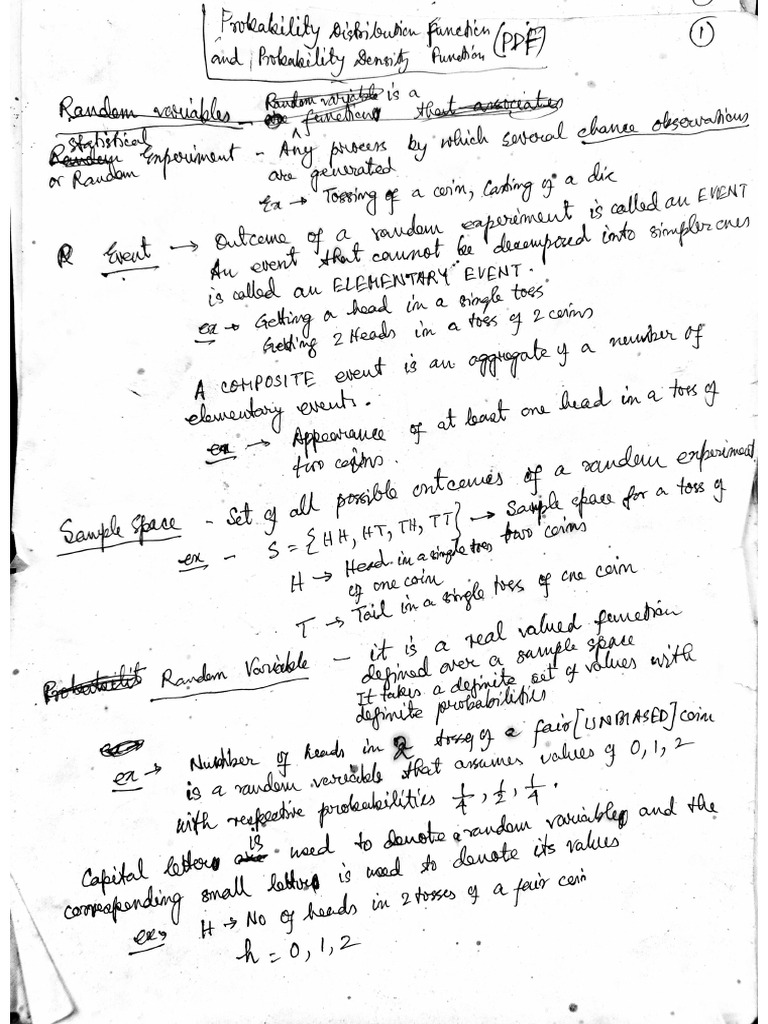 Probability Distribution Function
and Probability Density Function (PDF)
1
Random variables - Random variable is a
function that associates
Statistical
Random Experiment - Any process by which several chance observations
or Random are generated
Ex → Tossing of a coin, Casting of a die
R Event → Outcome of a random experiment is called an EVENT
An event that cannot be decomposed into simpler ones
is called an ELEMENTARY EVENT.
ex → Getting a head in a single toss
Getting 2 Heads in a toss of 2 coins
A COMPOSITE event is an aggregate of a number of
elementary events.
ex → Appearance of at least one head in a toss of
two coins.
Sample Space - Set of all possible outcomes of a random experiment
ex - S = {HH, HT, TH, TT} → Sample space for a toss of
two coins
H → Head in a single toss
of one coin
T → Tail in a single toss of one coin
Random Variable - it is a real valued function
defined over a sample space
It takes a definite set of values with
definite probabilities
ex → Number of heads in 2 tosses of a fair [UNBIASED] coin
is a random variable that assumes values of 0, 1, 2
with respective probabilities 1/4, 1/2, 1/4.
Capital letter is used to denote a random variable and the
corresponding small letter is used to denote its values
ex → H → No of heads in 2 tosses of a fair coin
h = 0, 1, 2